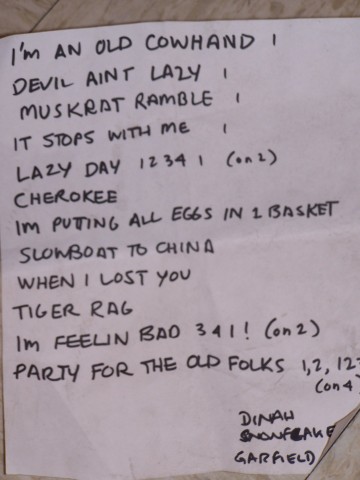 I'm AN OLD COWHAND 1
DEVIL AINT LAZY 1
MUSKRAT RAMBLE 1
IT STOPS WITH ME 1
LAZY DAY 1 2 3 4 1 (on 2)
CHEROKEE
Im PUTING ALL EGGS IN 1 BASKET
SLOWBOAT TO CHINA
WHEN I LOST YOU
TIGER RAG
Im FEELIN BAD 3 4 1! (on 2)
PARTY FOR THE OLD FOLKS 1, 2, 123
(on 4
DINAH
SNOWFLAKE
GARFIELD